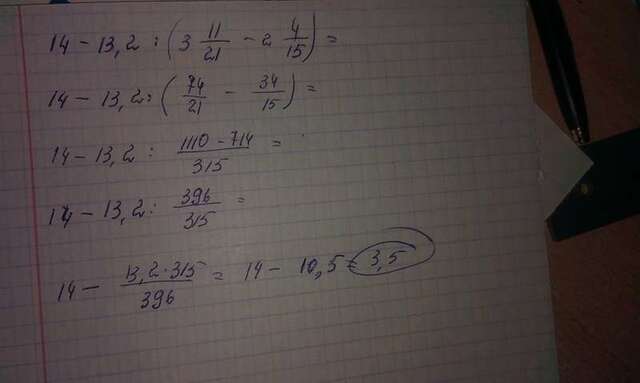 14 - 13,2 : (3 11/21 - 2 4/15) =
14 - 13,2 : (74/21 - 34/15) =
14 - 13,2 : (1110 - 714)/315 =
14 - 13,2 : 396/315 =
14 - (13,2 · 315)/396 = 14 - 10,5 = 3,5